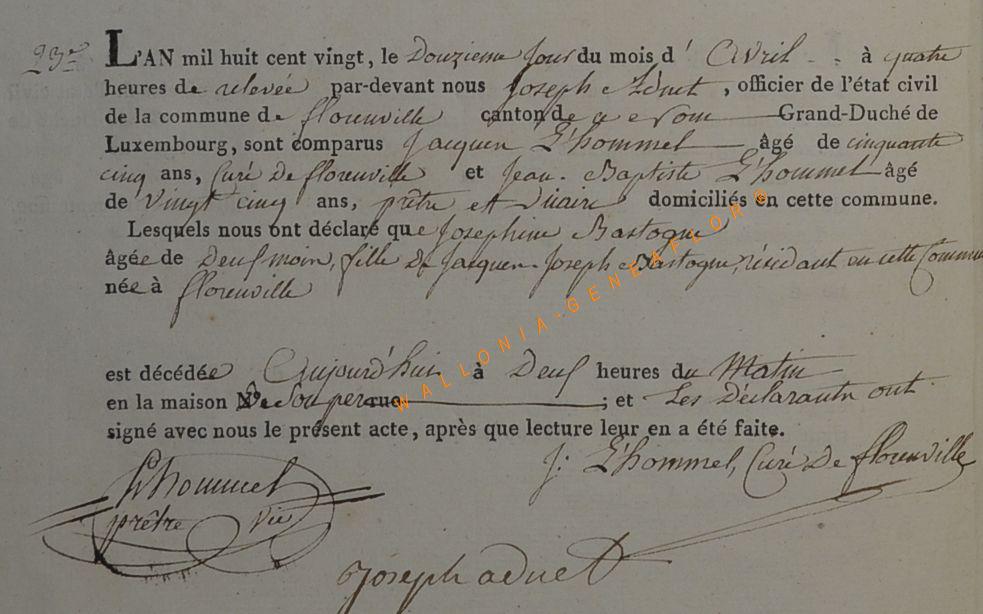 23e L'AN mil huit cent vingt, le Douzieme Jour du mois d' Avril à quatre
heures de relevée par-devant nous Joseph Adnet, officier de l'état civil
de la commune de florenville canton de ce nom Grand-Duché de
Luxembourg, sont comparus Jacques L'hommel âgé de cinquante
cinq ans, Curé De florenville et Jean-Baptiste L'hommel âgé
de vingt cinq ans, prêtre et vicaire domiciliés en cette commune.
Lesquels nous ont déclaré que Josephine Bastogne
âgée de Deux mois, fille De Jacques-Joseph Bastogne, résidant en cette Commune
née à florenville
est décédée Aujourd'hui à Deux heures du Matin
en la maison De Son pere rue ; et Les Déclarants ont
signé avec nous le présent acte, après que lecture leur en a été faite.
J: L'hommel, Curé De florenville
Lhommel
prêtre vic
Joseph adnet
WALLONIA-GENEAFLOR®